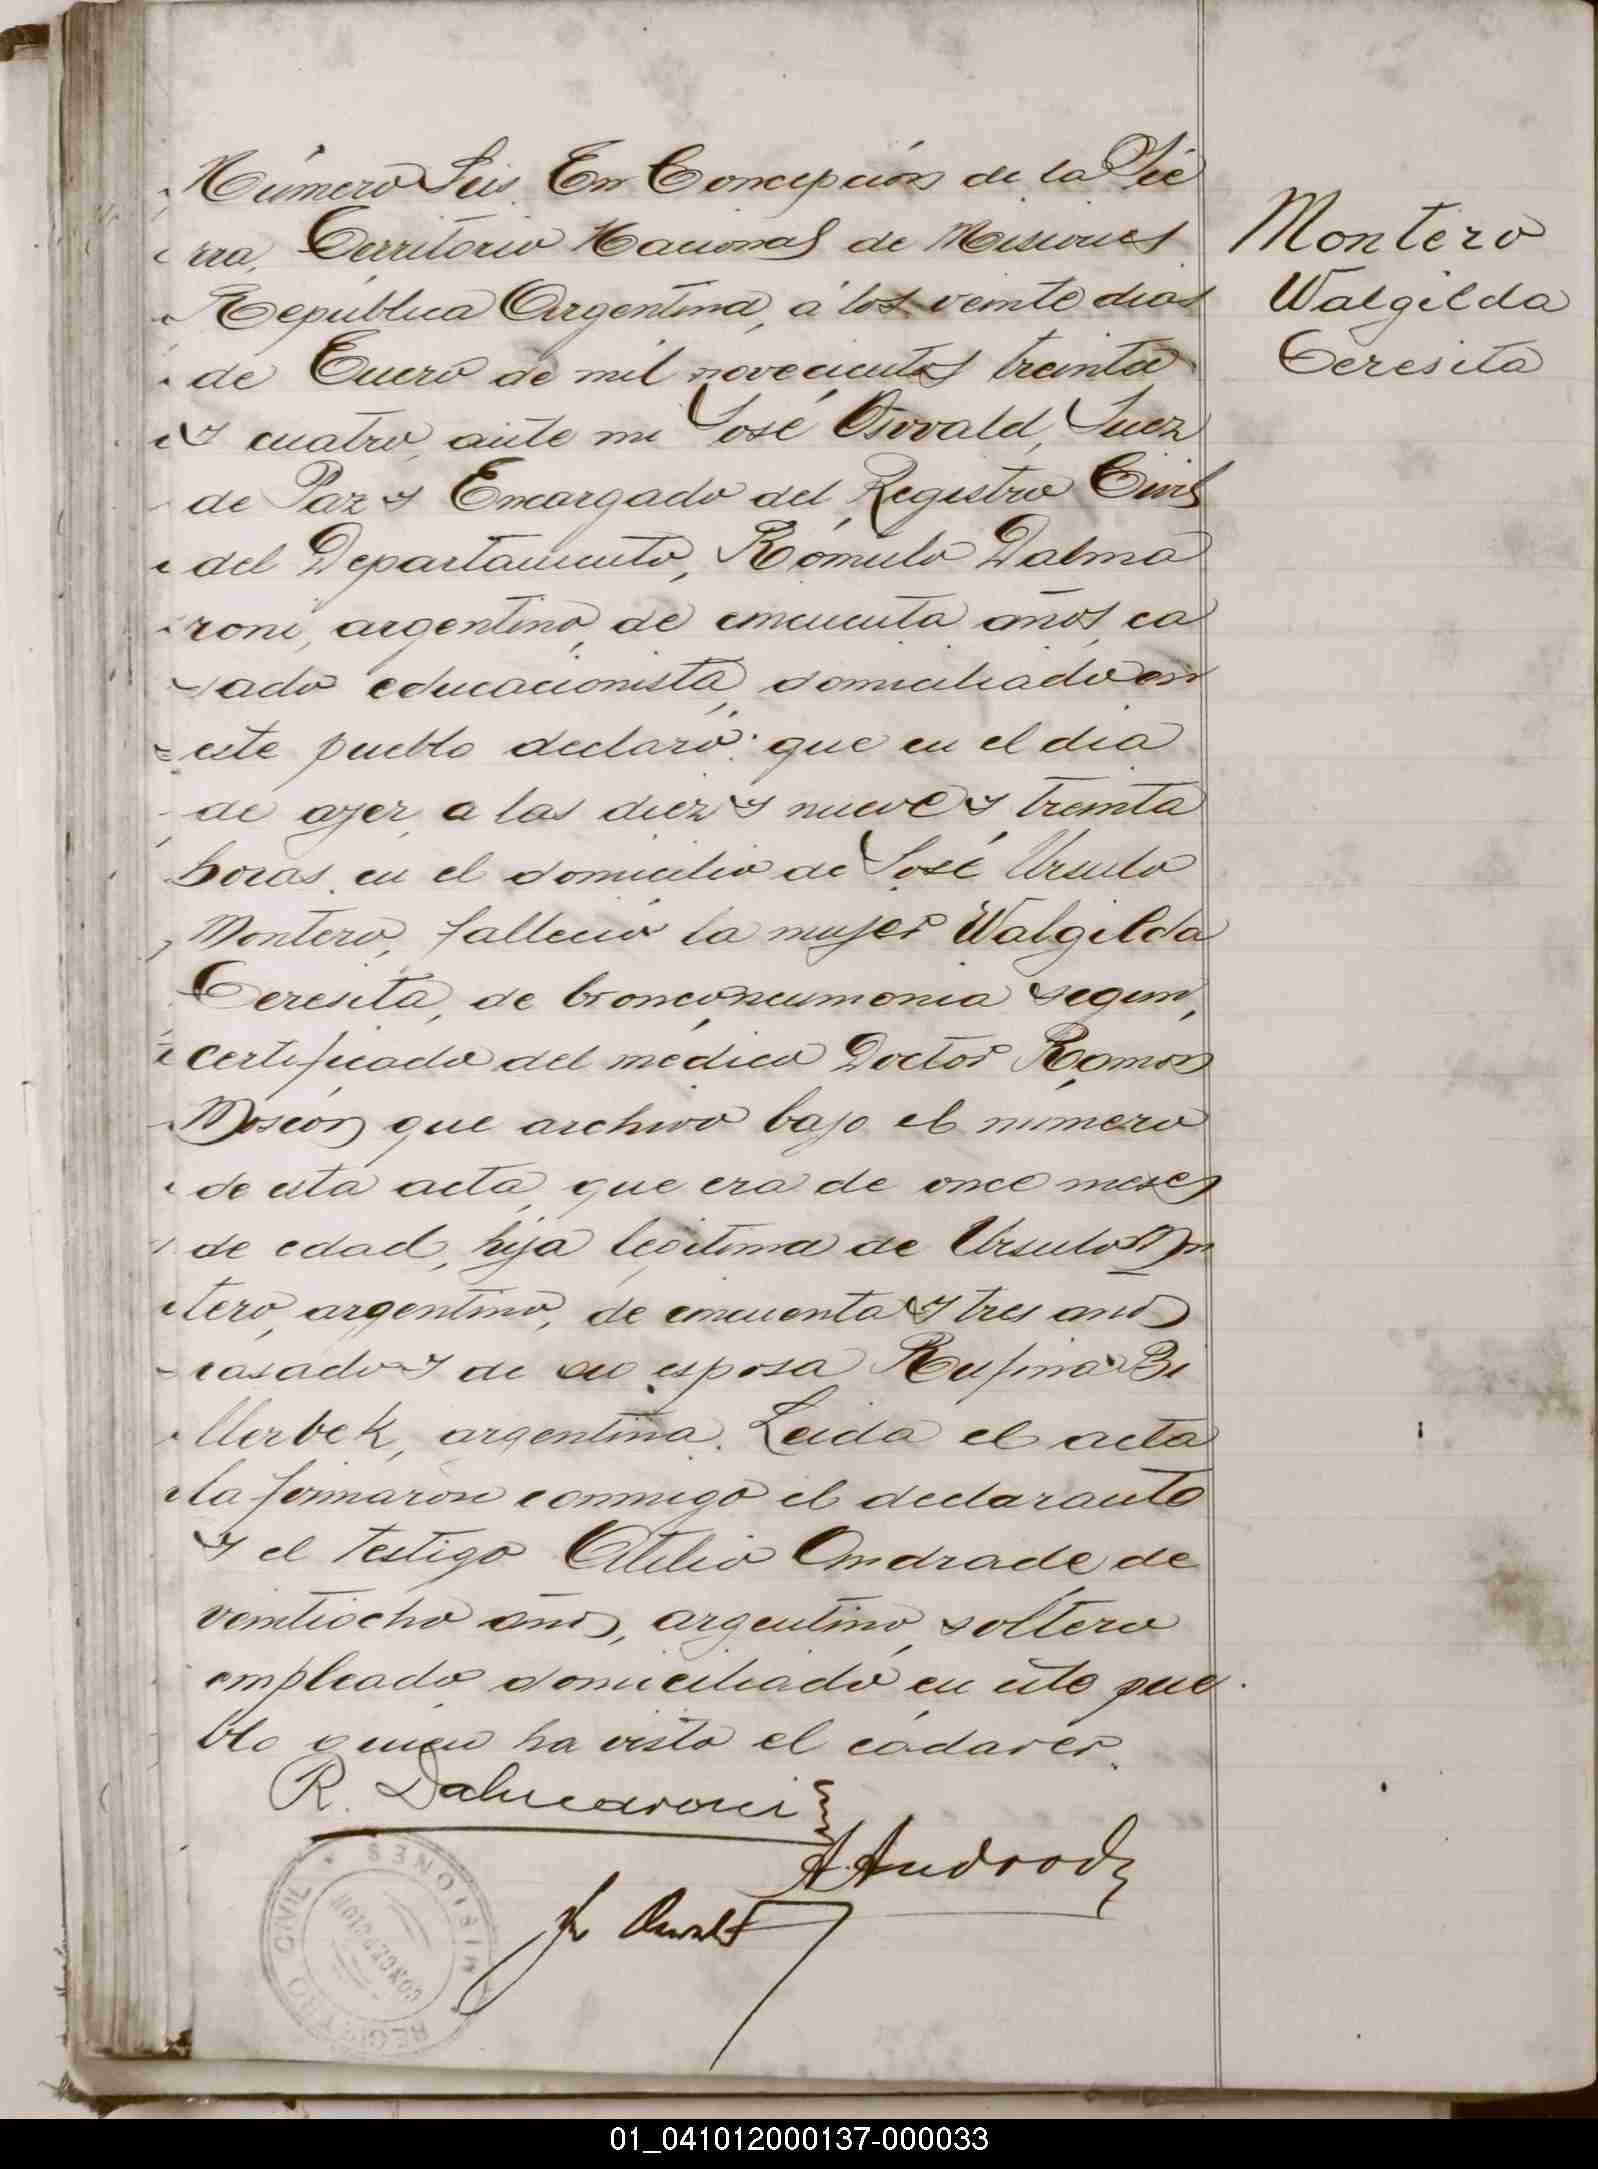 Número Seis. En Concepción de la Sie
rra, Territorio Nacional de Misiones
República Argentina, á los veinte dias
de Enero de mil novecientos treinta
y cuatro, ante mi José Oswald, Juez
de Paz y Encargado del Registro Civil
del Departamento, Rómulo Dalma
roni, argentino, de cincuenta años, ca
sado educacionista, domiciliado en
este pueblo declaró: que en el dia
de ayer, a las diez y nueve y treinta
horas, en el domicilio de José Ursulo
Montero, falleció la mujer Walgilda
Teresita, de bronconeumonia segun,
certificado del médico Doctor Ramon
que archivo bajo el número
de esta acta, que era de once meses
de edad, hija legitima de Ursulo Mon
tero, argentino, de cincuenta y tres años
casado y de su esposa Rufina Bi
llerbek, argentina. Leida el acta
la firmaron conmigo el declarante
y el testigo Atilio Andrade de
veintiocho años, argentino, soltero
empleado domiciliado en este pue
blo quien ha visto el cadaver.
Montero
Walgilda
Teresita
R. Dalmaroni
A. Andrade
Oswald
REGISTRO CIVIL
MISIONES
CONCEPCION
01_041012000137-000033